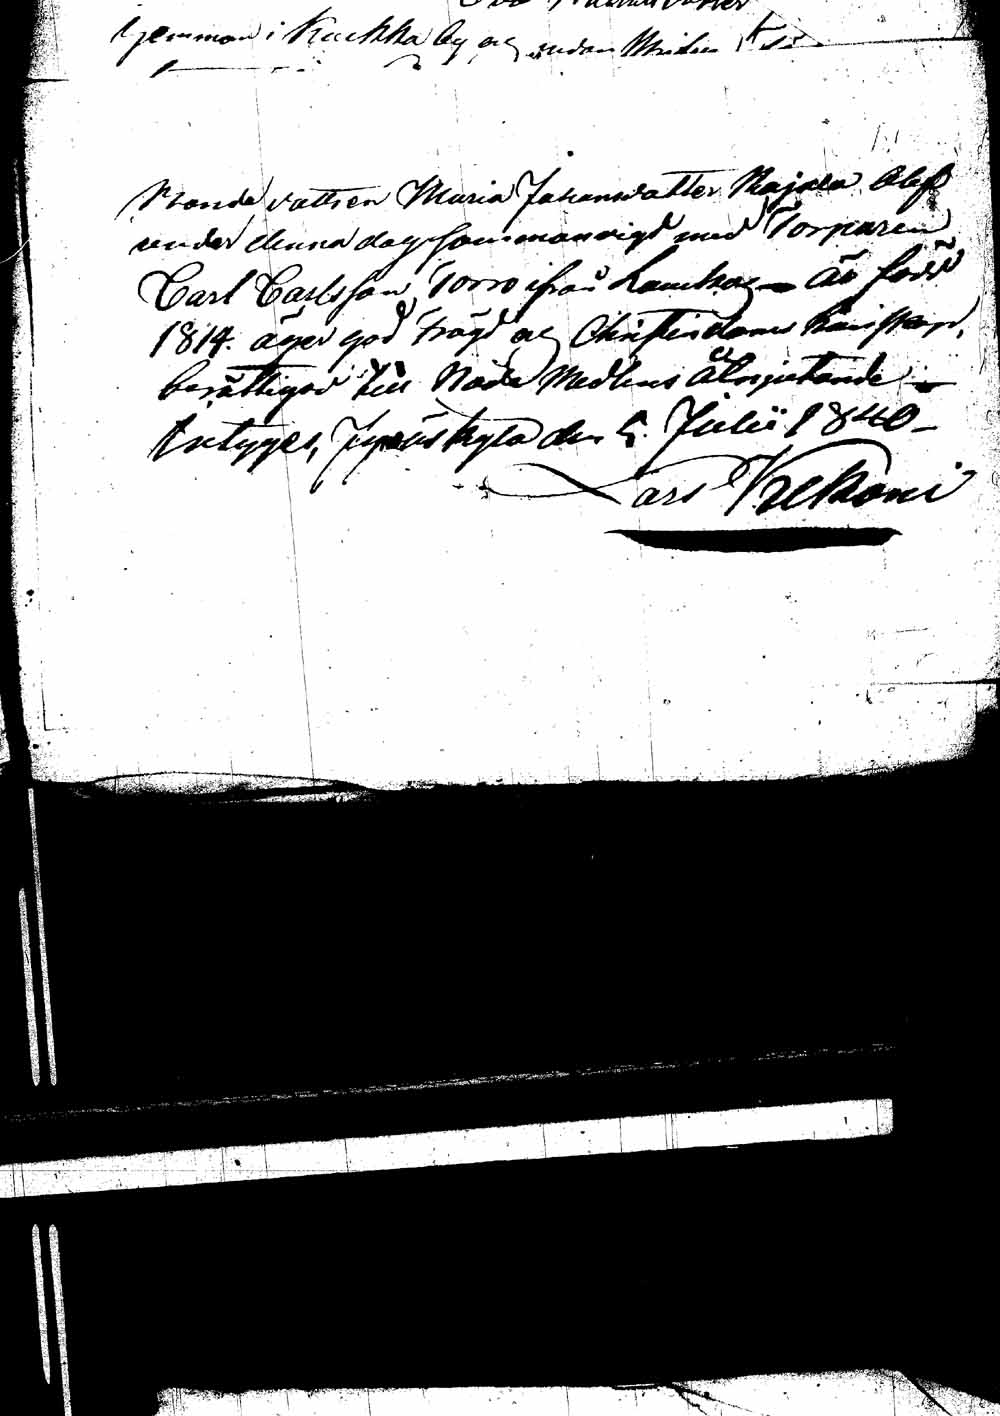 hemman i Kuckka by og
Bondedottren Maria Johansdotter Kajala blef
under denna dag sammanvigd med Torparen
Carl Carlsson Torro ifrån Laukas är född
1814. äger god frägd og Christendoms kunskap,
berättigad till Nåde Medlens åtnjutande
Intygar, Jyväskylä den 5. Julii 1840
Lars